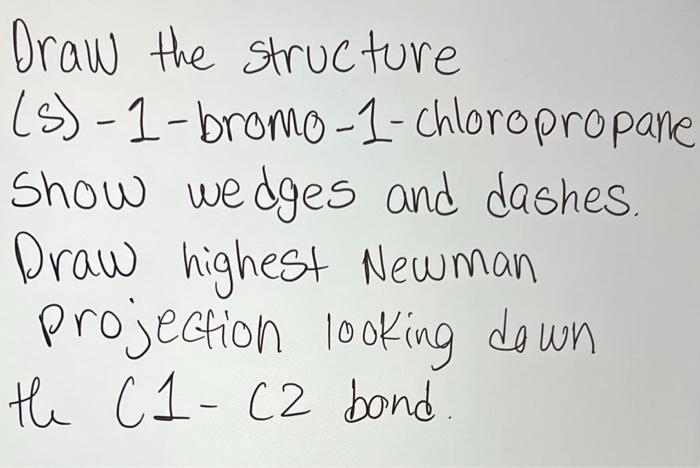 Draw the structure
(s)-1-bromo-1-chloropropane
Show wedges and dashes.
Draw highest Newman
projection looking down
the C1-C2 bond.